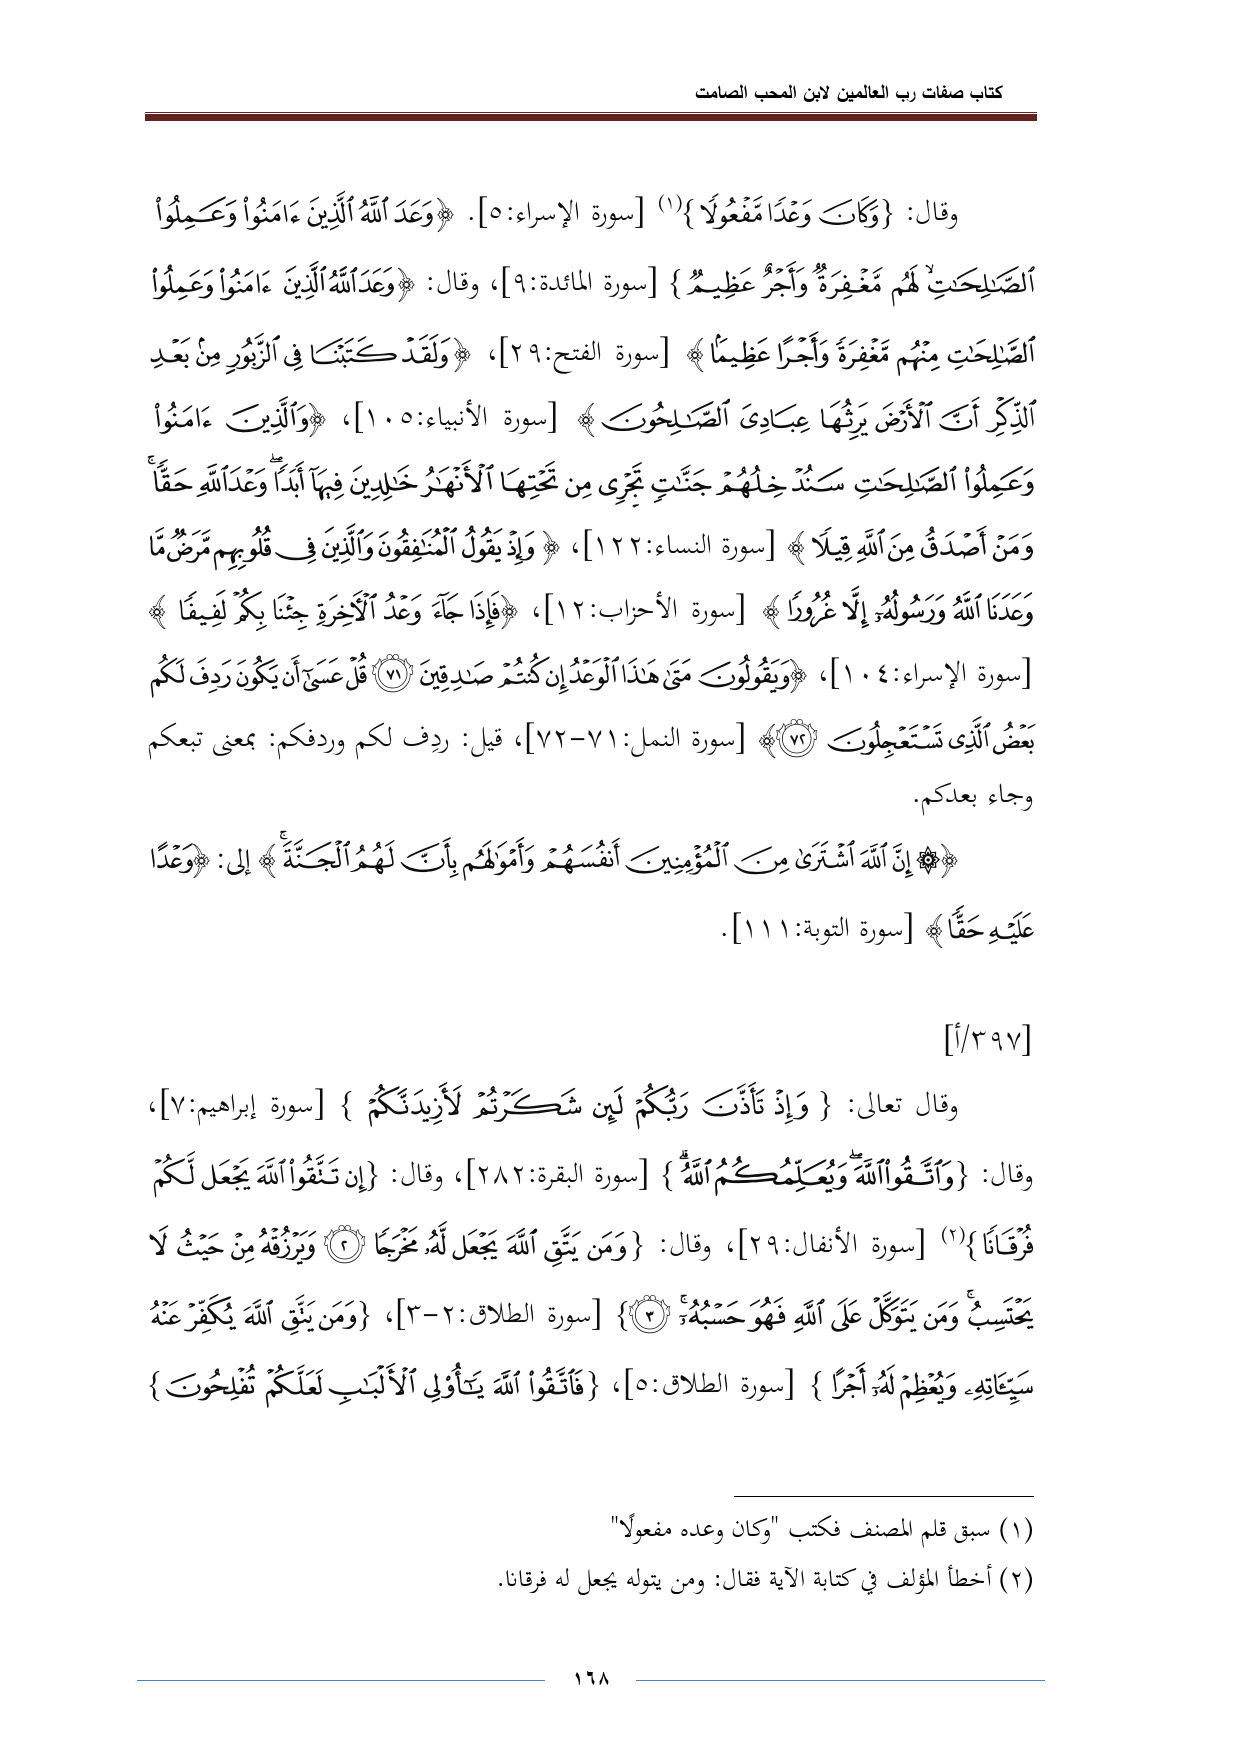 كتاب صفات رب العالمين لابن المحب الصامت
وقال: {وَكَانَ وَعۡدٗا مَّفۡعُولٗا}(١) [سورة الإسراء:٥]. ﴿وَعَدَ ٱللَّهُ ٱلَّذِينَ ءَامَنُواْ وَعَمِلُواْ
ٱلصَّٰلِحَٰتِ لَهُم مَّغۡفِرَةٞ وَأَجۡرٌ عَظِيمٞ} [سورة المائدة:٩]، وقال: ﴿وَعَدَ ٱللَّهُ ٱلَّذِينَ ءَامَنُواْ وَعَمِلُواْ
ٱلصَّٰلِحَٰتِ مِنۡهُم مَّغۡفِرَةٗ وَأَجۡرًا عَظِيمَۢا﴾ [سورة الفتح:٢٩]، ﴿وَلَقَدۡ كَتَبۡنَا فِي ٱلزَّبُورِ مِنۢ بَعۡدِ
ٱلذِّكۡرِ أَنَّ ٱلۡأَرۡضَ يَرِثُهَا عِبَادِيَ ٱلصَّٰلِحُونَ﴾ [سورة الأنبياء:١٠٥]، ﴿وَٱلَّذِينَ ءَامَنُواْ
وَعَمِلُواْ ٱلصَّٰلِحَٰتِ سَنُدۡخِلُهُمۡ جَنَّٰتٖ تَجۡرِي مِن تَحۡتِهَا ٱلۡأَنۡهَٰرُ خَٰلِدِينَ فِيهَآ أَبَدٗاۖ وَعۡدَ ٱللَّهِ حَقّٗاۚ
وَمَنۡ أَصۡدَقُ مِنَ ٱللَّهِ قِيلٗا﴾ [سورة النساء:١٢٢]، ﴿وَإِذۡ يَقُولُ ٱلۡمُنَٰفِقُونَ وَٱلَّذِينَ فِي قُلُوبِهِم مَّرَضٞ مَّا
وَعَدَنَا ٱللَّهُ وَرَسُولُهُۥٓ إِلَّا غُرُورٗا﴾ [سورة الأحزاب:١٢]، ﴿فَإِذَا جَآءَ وَعۡدُ ٱلۡأٓخِرَةِ جِئۡنَا بِكُمۡ لَفِيفٗا﴾
[سورة الإسراء:١٠٤]، ﴿وَيَقُولُونَ مَتَىٰ هَٰذَا ٱلۡوَعۡدُ إِن كُنتُمۡ صَٰدِقِينَ ٧١ قُلۡ عَسَىٰٓ أَن يَكُونَ رَدِفَ لَكُم
بَعۡضُ ٱلَّذِي تَسۡتَعۡجِلُونَ ٧٢﴾ [سورة النمل:٧١-٧٢]، قيل: ردِف لكم وردفكم: بمعنى تبعكم
وجاء بعدكم.
﴿۞ إِنَّ ٱللَّهَ ٱشۡتَرَىٰ مِنَ ٱلۡمُؤۡمِنِينَ أَنفُسَهُمۡ وَأَمۡوَٰلَهُم بِأَنَّ لَهُمُ ٱلۡجَنَّةَۚ﴾ إلى: ﴿وَعۡدًا
عَلَيۡهِ حَقّٗا﴾ [سورة التوبة:١١١].
[٣٩٧/أ]
وقال تعالى: {وَإِذۡ تَأَذَّنَ رَبُّكُمۡ لَئِن شَكَرۡتُمۡ لَأَزِيدَنَّكُمۡ} [سورة إبراهيم:٧]،
وقال: {وَٱتَّقُواْ ٱللَّهَۖ وَيُعَلِّمُكُمُ ٱللَّهُۗ} [سورة البقرة:٢٨٢]، وقال: {إِن تَتَّقُواْ ٱللَّهَ يَجۡعَل لَّكُمۡ
فُرۡقَانٗا}(٢) [سورة الأنفال:٢٩]، وقال: {وَمَن يَتَّقِ ٱللَّهَ يَجۡعَل لَّهُۥ مَخۡرَجٗا ٢ وَيَرۡزُقۡهُ مِنۡ حَيۡثُ لَا
يَحۡتَسِبُۚ وَمَن يَتَوَكَّلۡ عَلَى ٱللَّهِ فَهُوَ حَسۡبُهُۥٓۚ ٣} [سورة الطلاق:٢-٣]، {وَمَن يَتَّقِ ٱللَّهَ يُكَفِّرۡ عَنۡهُ
سَيِّـَٔاتِهِۦ وَيُعۡظِمۡ لَهُۥٓ أَجۡرًا} [سورة الطلاق:٥]، {فَٱتَّقُواْ ٱللَّهَ يَٰٓأُوْلِي ٱلۡأَلۡبَٰبِ لَعَلَّكُمۡ تُفۡلِحُونَ}
(١) سبق قلم المصنف فكتب "وكان وعده مفعولًا"
(٢) أخطأ المؤلف في كتابة الآية فقال: ومن يتوله يجعل له فرقانا.
١٦٨